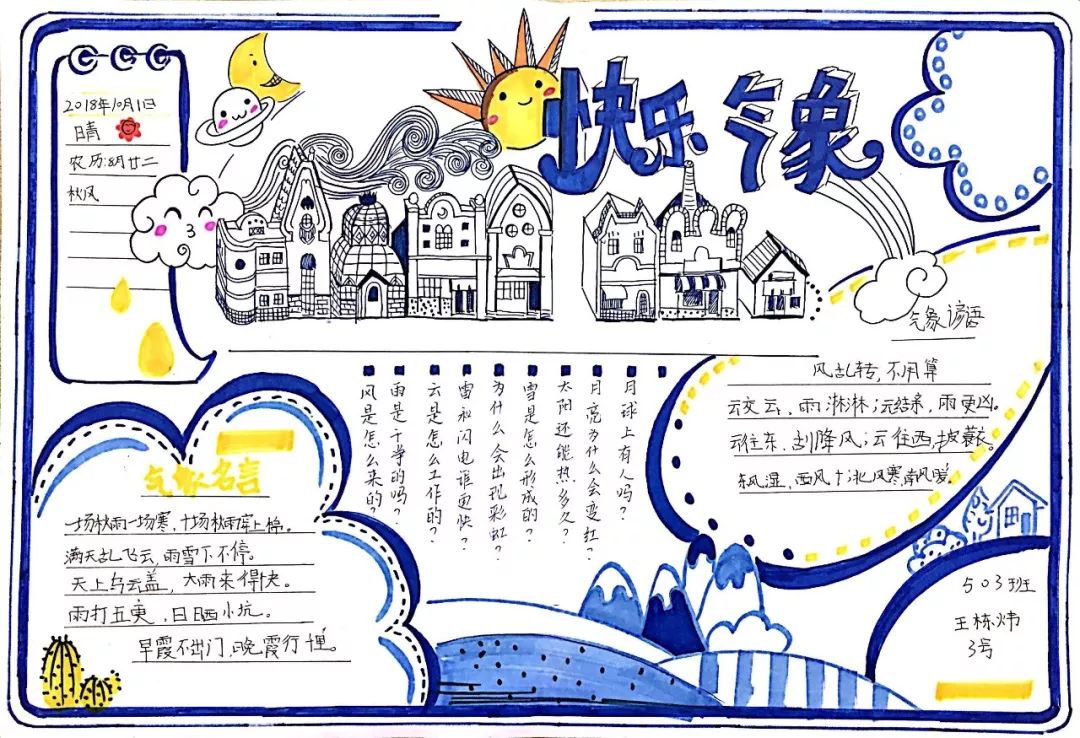 快乐气象
2018年10月1日
晴
农历:8月廿二
秋风
气象谚语
风乱转,不用算
云交云,雨淋淋;云结亲,雨更凶。
云往东,刮降风;云往西,披蓑衣
东风湿,西风干;北风寒南风暖。
月球上有人吗?
月亮为什么会变红?
太阳还能热多久?
雪是怎么形成的?
为什么会出现彩虹?
雷和闪电谁更快?
云是怎么工作的?
雨是干净的吗?
风是怎么来的?
气象名言
一场秋雨一场寒,十场秋雨
满天乱飞云,雨雪下不停。
天上乌云盖,大雨来得快。
雨打五更,日晒小坑。
早霞不出门,晚霞行千里。
503班
王栋炜
3号